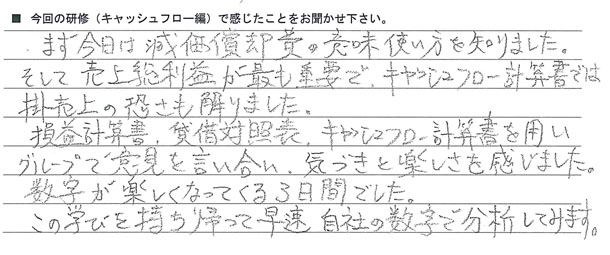 ■ 今回の研修（キャッシュフロー編）で感じたことをお聞かせ下さい。
まず今日は減価償却費の意味使い方を知りました。
そして売上総利益が最も重要で、キャッシュフロー計算書では
掛売上の恐さも解りました。
損益計算書、貸借対照表、キャッシュフロー計算書を用い
グループで意見を言い合い、気づきと楽しさを感じました。
数字が楽しくなってくる3日間でした。
この学びを持ち帰って早速自社の数字で分析してみます。